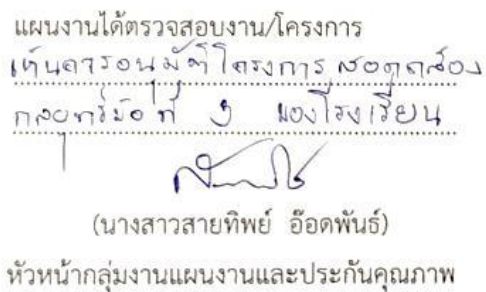 แผนงานได้ตรวจสอบงาน/โครงการ
เห็นควรอนุมัติโครงการ สอดคล้อง
กลยุทธ์ข้อที่ ๖ ของโรงเรียน
(นางสาวสายทิพย์ อ๊อดพันธ์)
หัวหน้ากลุ่มงานแผนงานและประกันคุณภาพ